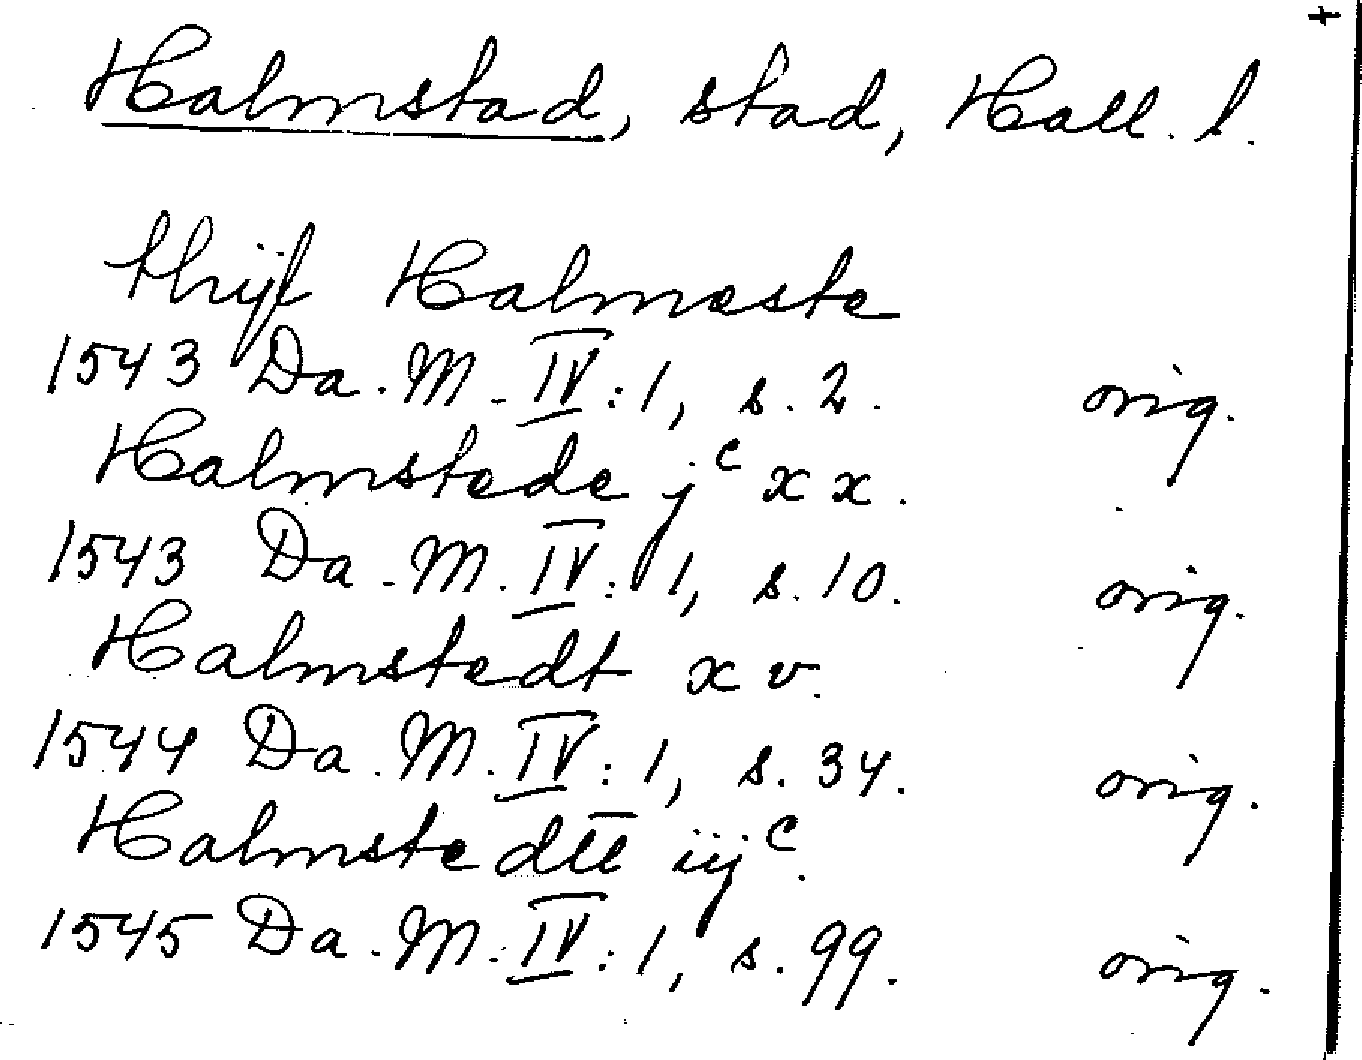 Halmstad, stad, Hall. l.
thijl Halmeste
1543 Da. M. IV:1, s. 2. orig.
Halmstede jc xx.
1543 Da. M. IV:1, s. 10. orig.
Halmstedt xv.
1544 Da. M. IV:1, s. 34. orig.
Halmstedtt iijc.
1545 Da. M. IV:1, s. 99. orig.